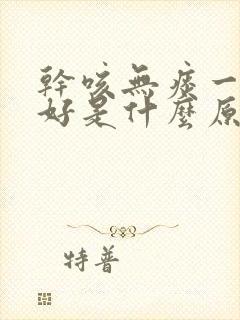 幹咳無痰一
好是什麼原
特普